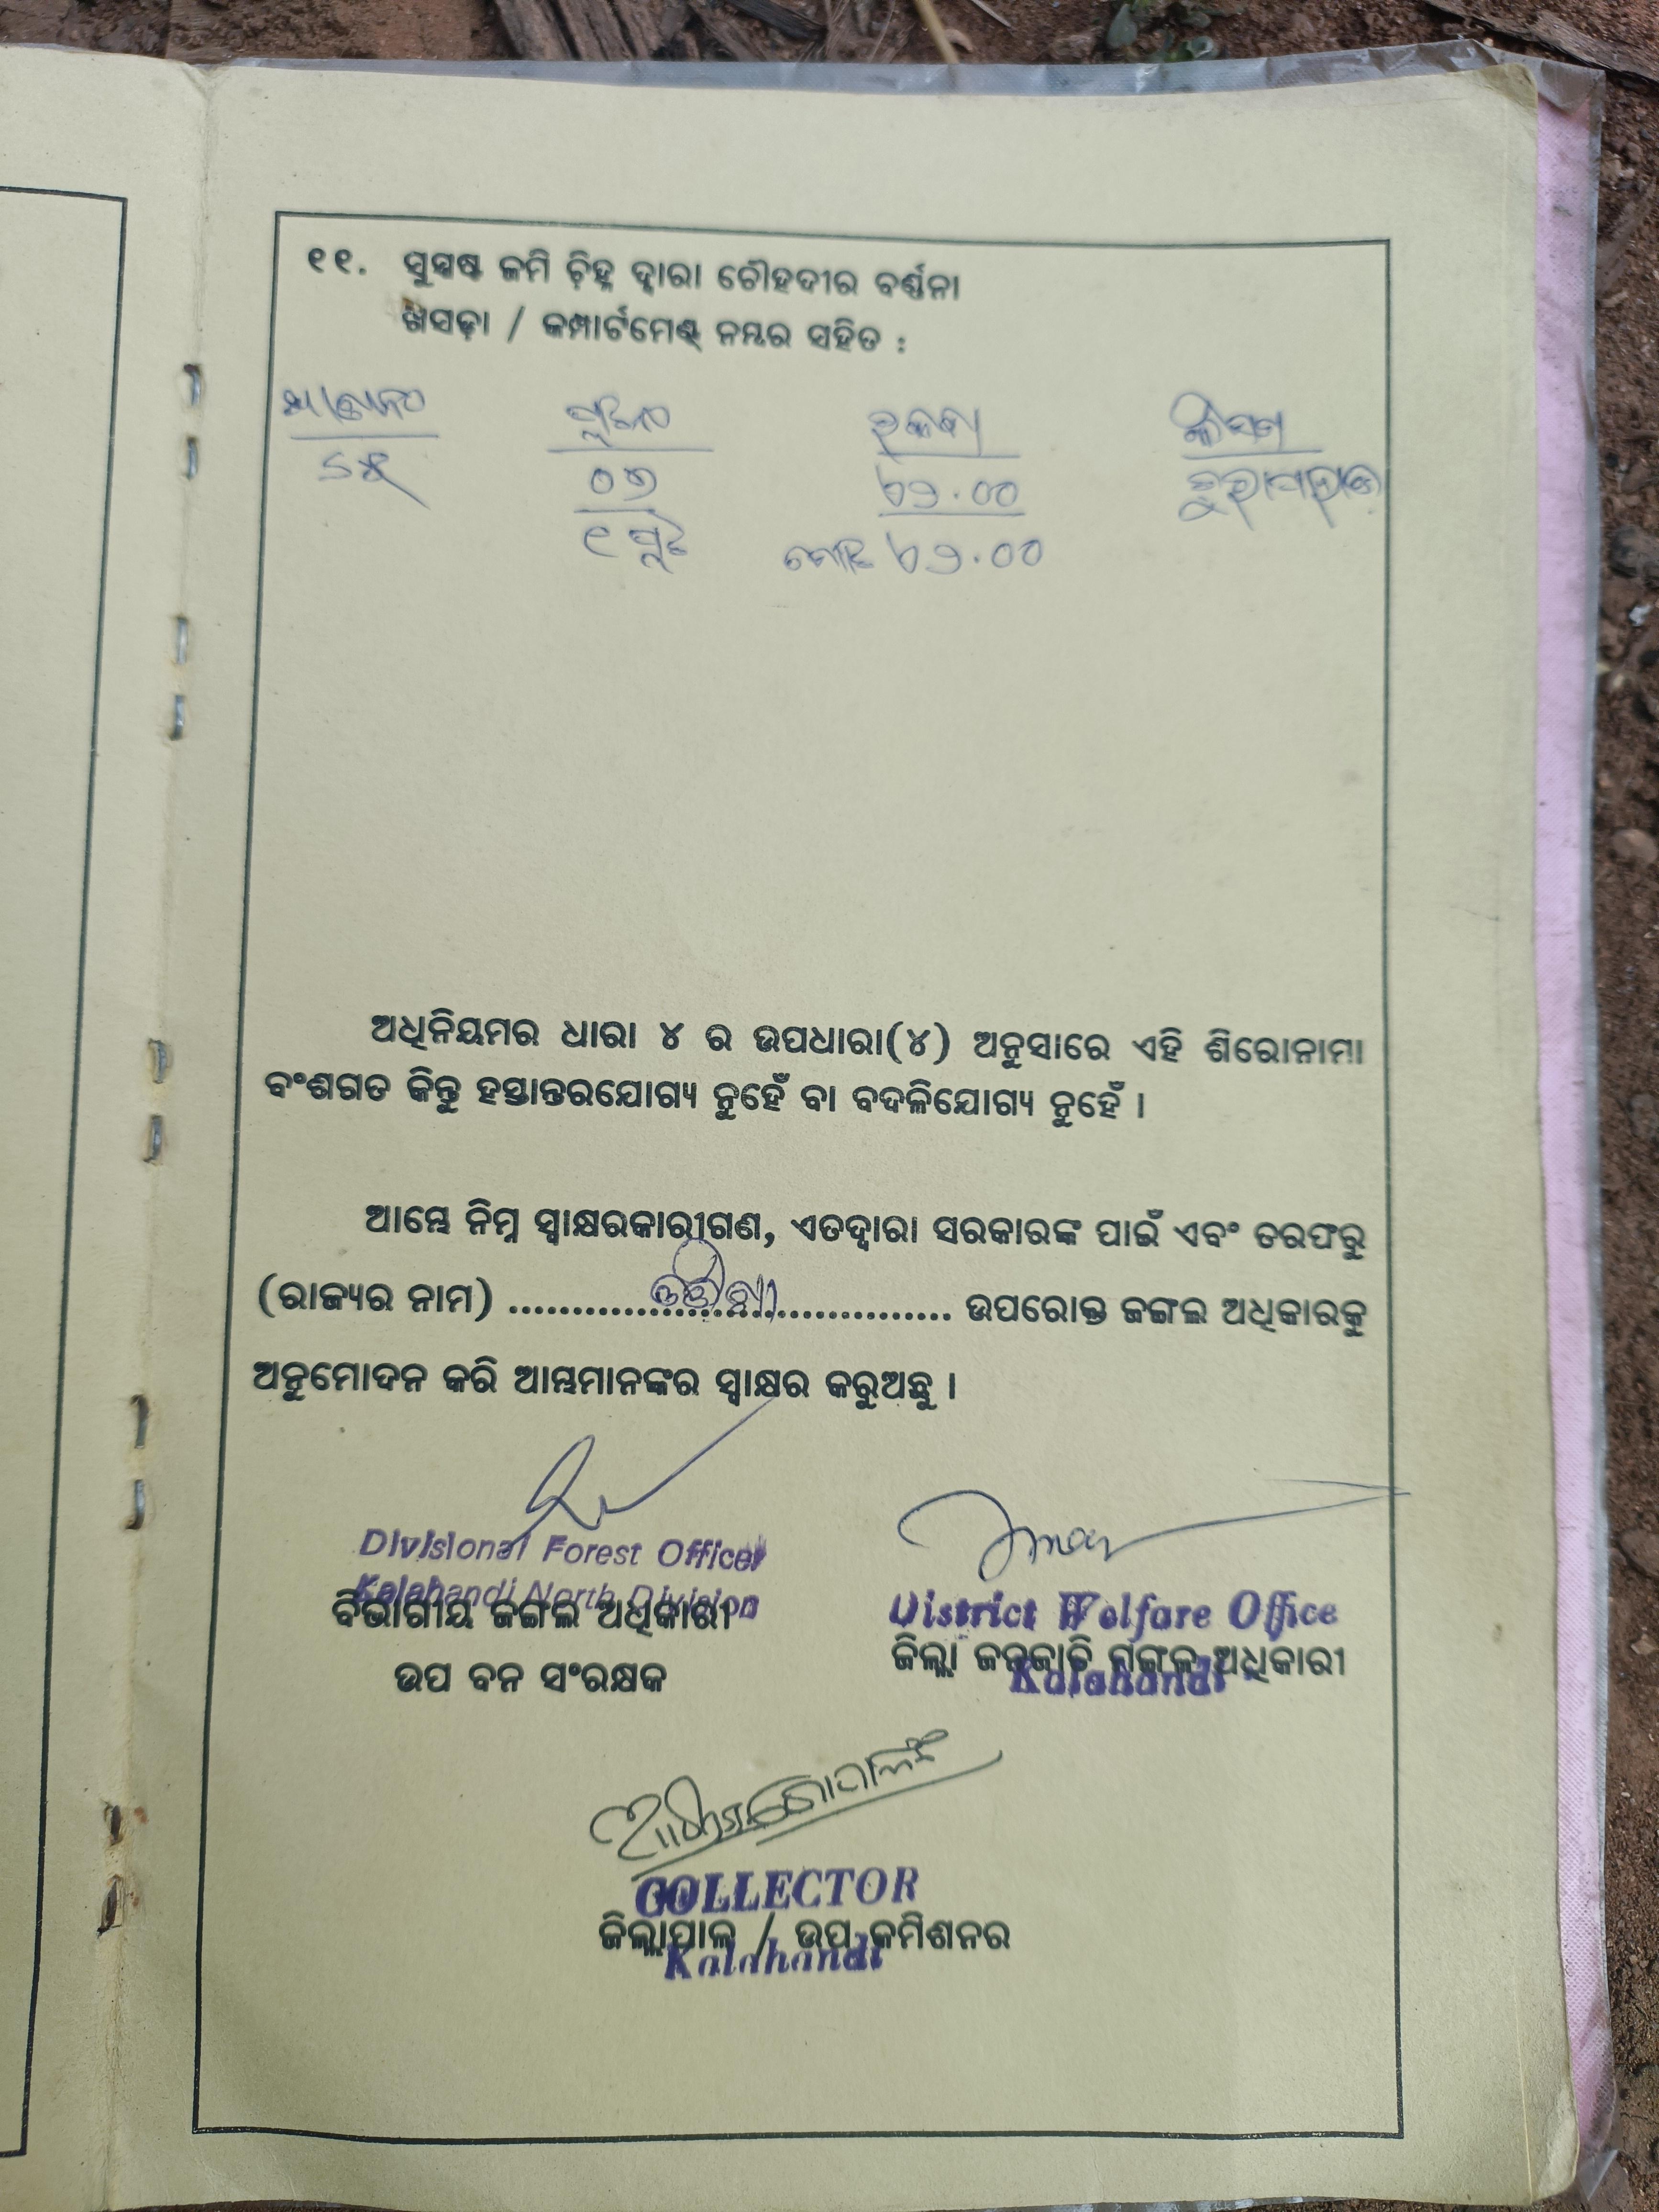 ୧୧. ସୁସ୍ପଷ୍ଟ ଜମି ଚିହ୍ନ ଦ୍ୱାରା ଚୌହଦୀର ବର୍ଣ୍ଣନା
ଖସଡ଼ା / କମ୍ପାର୍ଟମେଣ୍ଟ୍ ନମ୍ବର ସହିତ :
ପ୍ଲଟନଂ ରକବା କିସମ
୦୭ ୧୬.୦୦
୧ ପ୍ଲଟ ମୋଟ ୧୬.୦୦
ଅଧିନିୟମର ଧାରା ୪ ର ଉପଧାରା(୪) ଅନୁସାରେ ଏହି ଶିରୋନାମା
ବଂଶଗତ କିନ୍ତୁ ହସ୍ତାନ୍ତରଯୋଗ୍ୟ ନୁହେଁ ବା ବଦଳିଯୋଗ୍ୟ ନୁହେଁ ।
ଆମ୍ଭେ ନିମ୍ନ ସ୍ୱାକ୍ଷରକାରୀଗଣ, ଏତଦ୍ୱାରା ସରକାରଙ୍କ ପାଇଁ ଏବଂ ତରଫରୁ
(ରାଜ୍ୟର ନାମ) ........ଓଡ଼ିଶା........ ଉପରୋକ୍ତ ଜଙ୍ଗଲ ଅଧିକାରକୁ
ଅନୁମୋଦନ କରି ଆମ୍ଭମାନଙ୍କର ସ୍ୱାକ୍ଷର କରୁଅଛୁ ।
Divisional Forest Officer
Kalahandi North Division
ବିଭାଗୀୟ ଜଙ୍ଗଲ ଅଧିକାରୀ
ଉପ ବନ ସଂରକ୍ଷକ
District Welfare Office
ଜିଲ୍ଲା ଜନଜାତି ମଙ୍ଗଳ ଅଧିକାରୀ
Kalahandi
COLLECTOR
ଜିଲ୍ଲାପାଳ / ଉପ କମିଶନର
Kalahandi